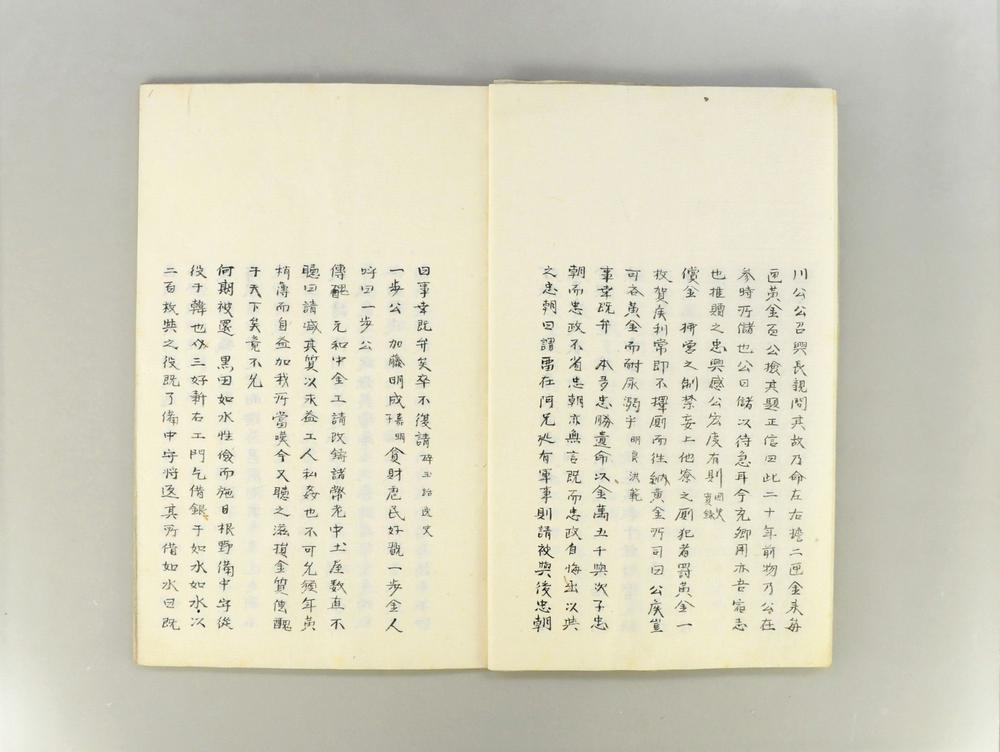 川公公召興長親問其故乃命左右擔二匣金来每
匣黃金百公撿其題正信曰此二十年前物乃公在
参時所儲也公曰儲以待急耳今充卿用亦吾宿志
也推贈之忠興感公宏度有則國史實錄
償金 柳營之制禁妄上他寮之厠犯者罰黃金一
枚賀侯利常即不擇厠而往納黃金所司曰公侯豈
可吝黃金而耐尿溺乎明良洪範
事幸既弁 本多忠勝遺命以金萬五千與次子忠
朝而忠政不省忠朝亦無言既而忠政自悔出以與
之忠朝曰謂留在阿兄 有軍事則請被與後忠朝
曰事幸既弁矣卒不復請碎玉話逸史
一步公 加藤明成嘉明子貪財虐民好翫一步金人
呼曰一步公
傳醜 元和中金工請改鑄諸幣老中土屋数直不
聽曰請減其質以求益工人私姦也不可允經年黃
 薄而自益加我所當嘆今又聽之滋損金質傳醜
于天下矣竟不允
何期被還 黑田如水性儉而施日根野備中守從
役于韓也 三好新右工門乞借銀于如水如水以
二百枚與之役既了備中守将返其所借如水曰既